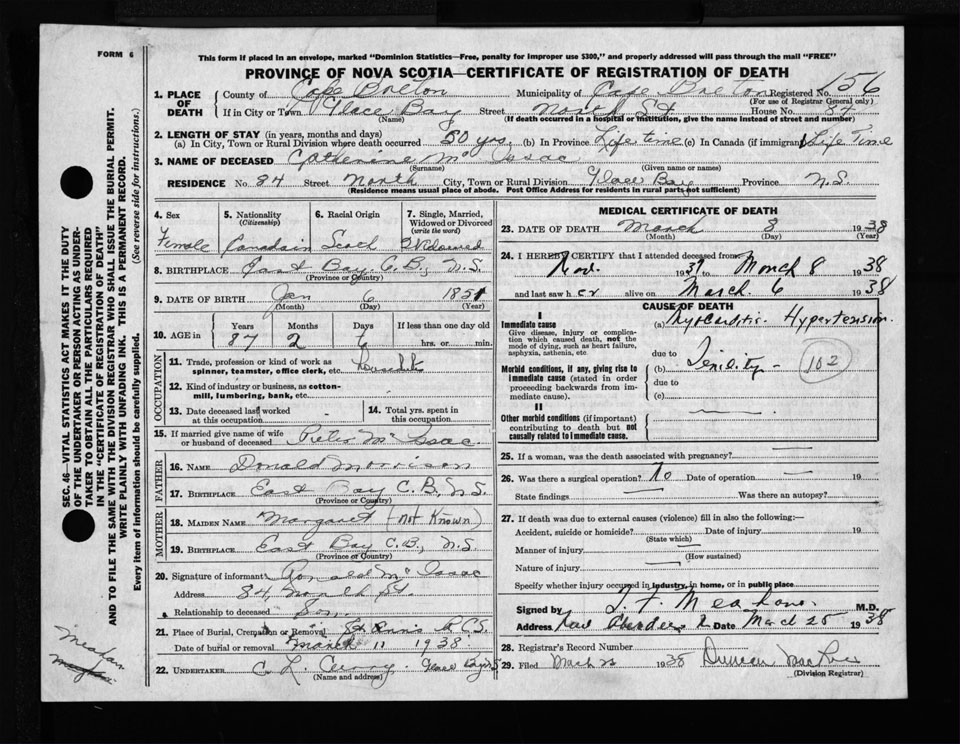 FORM 6
This form if placed in an envelope, marked "Dominion Statistics—Free, penalty for improper use $300," and properly addressed will pass through the mail "FREE"
PROVINCE OF NOVA SCOTIA—CERTIFICATE OF REGISTRATION OF DEATH
1. PLACE OF DEATH County of Cape Breton Municipality of Cape Breton Registered No. 156
(For use of Registrar General only)
If in City or Town Glace Bay Street North St House No. 84
(Name) (If death occurred in a hospital or institution, give the name instead of street and number)
2. LENGTH OF STAY (in years, months and days)
(a) In City, Town or Rural Division where death occurred 50 yrs, (b) In Province Life time (c) In Canada (if immigrant) Life Time
3. NAME OF DECEASED Catherine Mc Issac
(Surname) (Given name or names)
RESIDENCE No. 84 Street North City, Town or Rural Division Glace Bay Province N.S.
(Residence means usual place of abode. Post Office Address for residents in rural parts not sufficient)
4. Sex 5. Nationality (Citizenship) 6. Racial Origin 7. Single, Married, Widowed or Divorced (write the word)
Female Canadain Scoch Widowed
8. BIRTHPLACE East Bay C.B., N.S.
(Province or Country)
9. DATE OF BIRTH Jan 6 1851
(Month) (Day) (Year)
10. AGE in Years Months Days If less than one day old
87 2 hrs. or min.
OCCUPATION
11. Trade, profession or kind of work as spinner, teamster, office clerk, etc.
12. Kind of industry or business, as cotton-mill, lumbering, bank, etc.
13. Date deceased last worked at this occupation
14. Total yrs. spent in this occupation
15. If married give name of wife or husband of deceased Peter Mc Issac.
FATHER
16. NAME Donald Morrison
17. BIRTHPLACE East Bay C.B., N.S.
(Province or Country)
MOTHER
18. MAIDEN NAME Margaret (not Known)
19. BIRTHPLACE East Bay C.B., N.S.
(Province or Country)
20. Signature of informant Ronald Mc Issac
Address 84, North St.
Relationship to deceased Son.
21. Place of Burial, Cremation or Removal St Anns R.C.S.
Date of burial or removal March 11 1938.
22. UNDERTAKER C. L. Curry. Glace Bay N.S
(Name and address)
MEDICAL CERTIFICATE OF DEATH
23. DATE OF DEATH March 8 1938
(Month) (Day) (Year)
24. I HEREBY CERTIFY that I attended deceased from
Nov. 1937 to March 8 1938
and last saw her alive on March 6 1938
CAUSE OF DEATH
I
Immediate cause
Give disease, injury or complication which caused death, not the mode of dying, such as heart failure, asphyxia, asthenia, etc
(a) Myocarditis - Hypertension.
due to
Morbid conditions, if any, giving rise to immediate cause (stated in order proceeding backwards from immediate cause).
(b) Senility - 102
due to
(c)
II
Other morbid conditions (if important) contributing to death but not causally related to immediate cause.
25. If a woman, was the death associated with pregnancy?
26. Was there a surgical operation? No Date of operation 19
State findings Was there an autopsy?
27. If death was due to external causes (violence) fill in also the following:—
Accident, suicide or homicide? Date of injury 19
(State which)
Manner of injury
(How sustained)
Nature of injury
Specify whether injury occurred in industry, in home, or in public place
Signed by M.D.
Address New Aberdeen Date March 25 1938
28. Registrar's Record Number
29. Filed March 25 1938 Duncan
(Division Registrar)
SEC. 46—VITAL STATISTICS ACT MAKES IT THE DUTY
OF THE UNDERTAKER OR PERSON ACTING AS UNDER-
TAKER TO OBTAIN ALL THE PARTICULARS REQUIRED
IN THE "CERTIFICATE OF REGISTRATION OF DEATH"
AND TO FILE THE SAME WITH THE DIVISION REGISTRAR WHO SHALL ISSUE THE BURIAL PERMIT.
WRITE PLAINLY WITH UNFADING INK. THIS IS A PERMANENT RECORD.
Every item of information should be carefully supplied. (See reverse side for instructions.)
Meahan